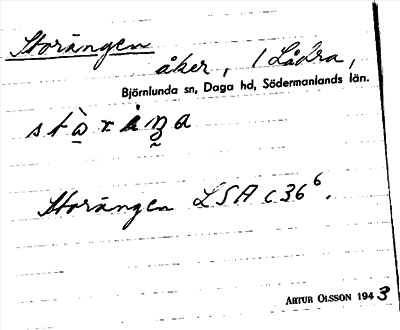 Storängen
åker, 1 Lådra,
Björnlunda sn, Daga hd, Södermanlands län.
Storängen LSA C36⁶.
ARTUR OLSSON 1943